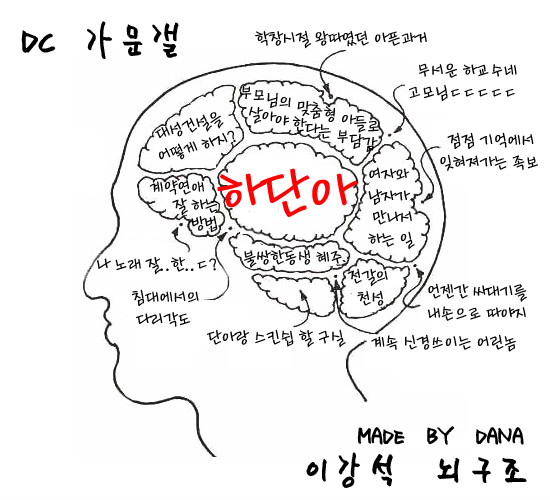 DC 가문갤
학창시절 왕따였던 아픈과거
무서운 하교수네
고모님ㄷㄷㄷㄷㄷ
부모님의 맞춤형 아들로
살아야 한다는 부담감
대성건설을
어떻게 하지?
점점 기억에서
잊혀져가는 족보
하단아
여자와
남자가
만나서
하는 일
계약연애
잘 하는
방법
나 노래 잘..한..ㄷ?
불쌍한동생 혜주
전갈의
천성
침대에서의
다리각도
언젠간 싸대기를
내손으로 따야지
단아랑 스킨쉽 할 구실
계속 신경쓰이는 어린놈
MADE BY DANA
이강석 뇌구조